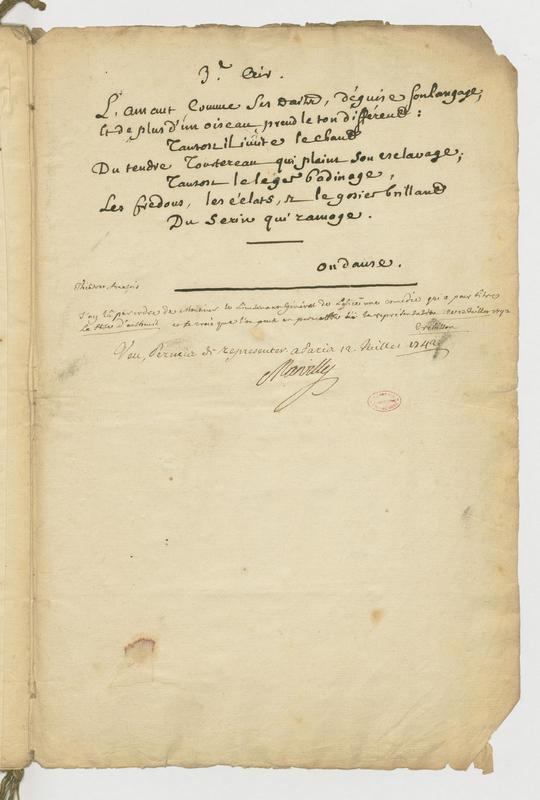 3.e Air.
L'amant comme ses dards, déguise son langage;
Et de plus d'un oiseau prend le ton différend:
Tantost il imite le chant
Du tendre Tourtereau qui plaint son esclavage;
Tantost le leger badinage,
Les fredons, les éclats, & le gosier brillant
Du Serin qui ramage.
on danse.
Théâtre françois
J'ay lû par ordre de Monsieur le Lieutenant Général de Police une comédie qui a pour titre
la fête d'auteuil et je crois que l'on peut en permettre la représentation. ce 12 Juillet 1742
Crébillon
Veu, Permis de representer, a Paris 12 Juillet 1742
Marville